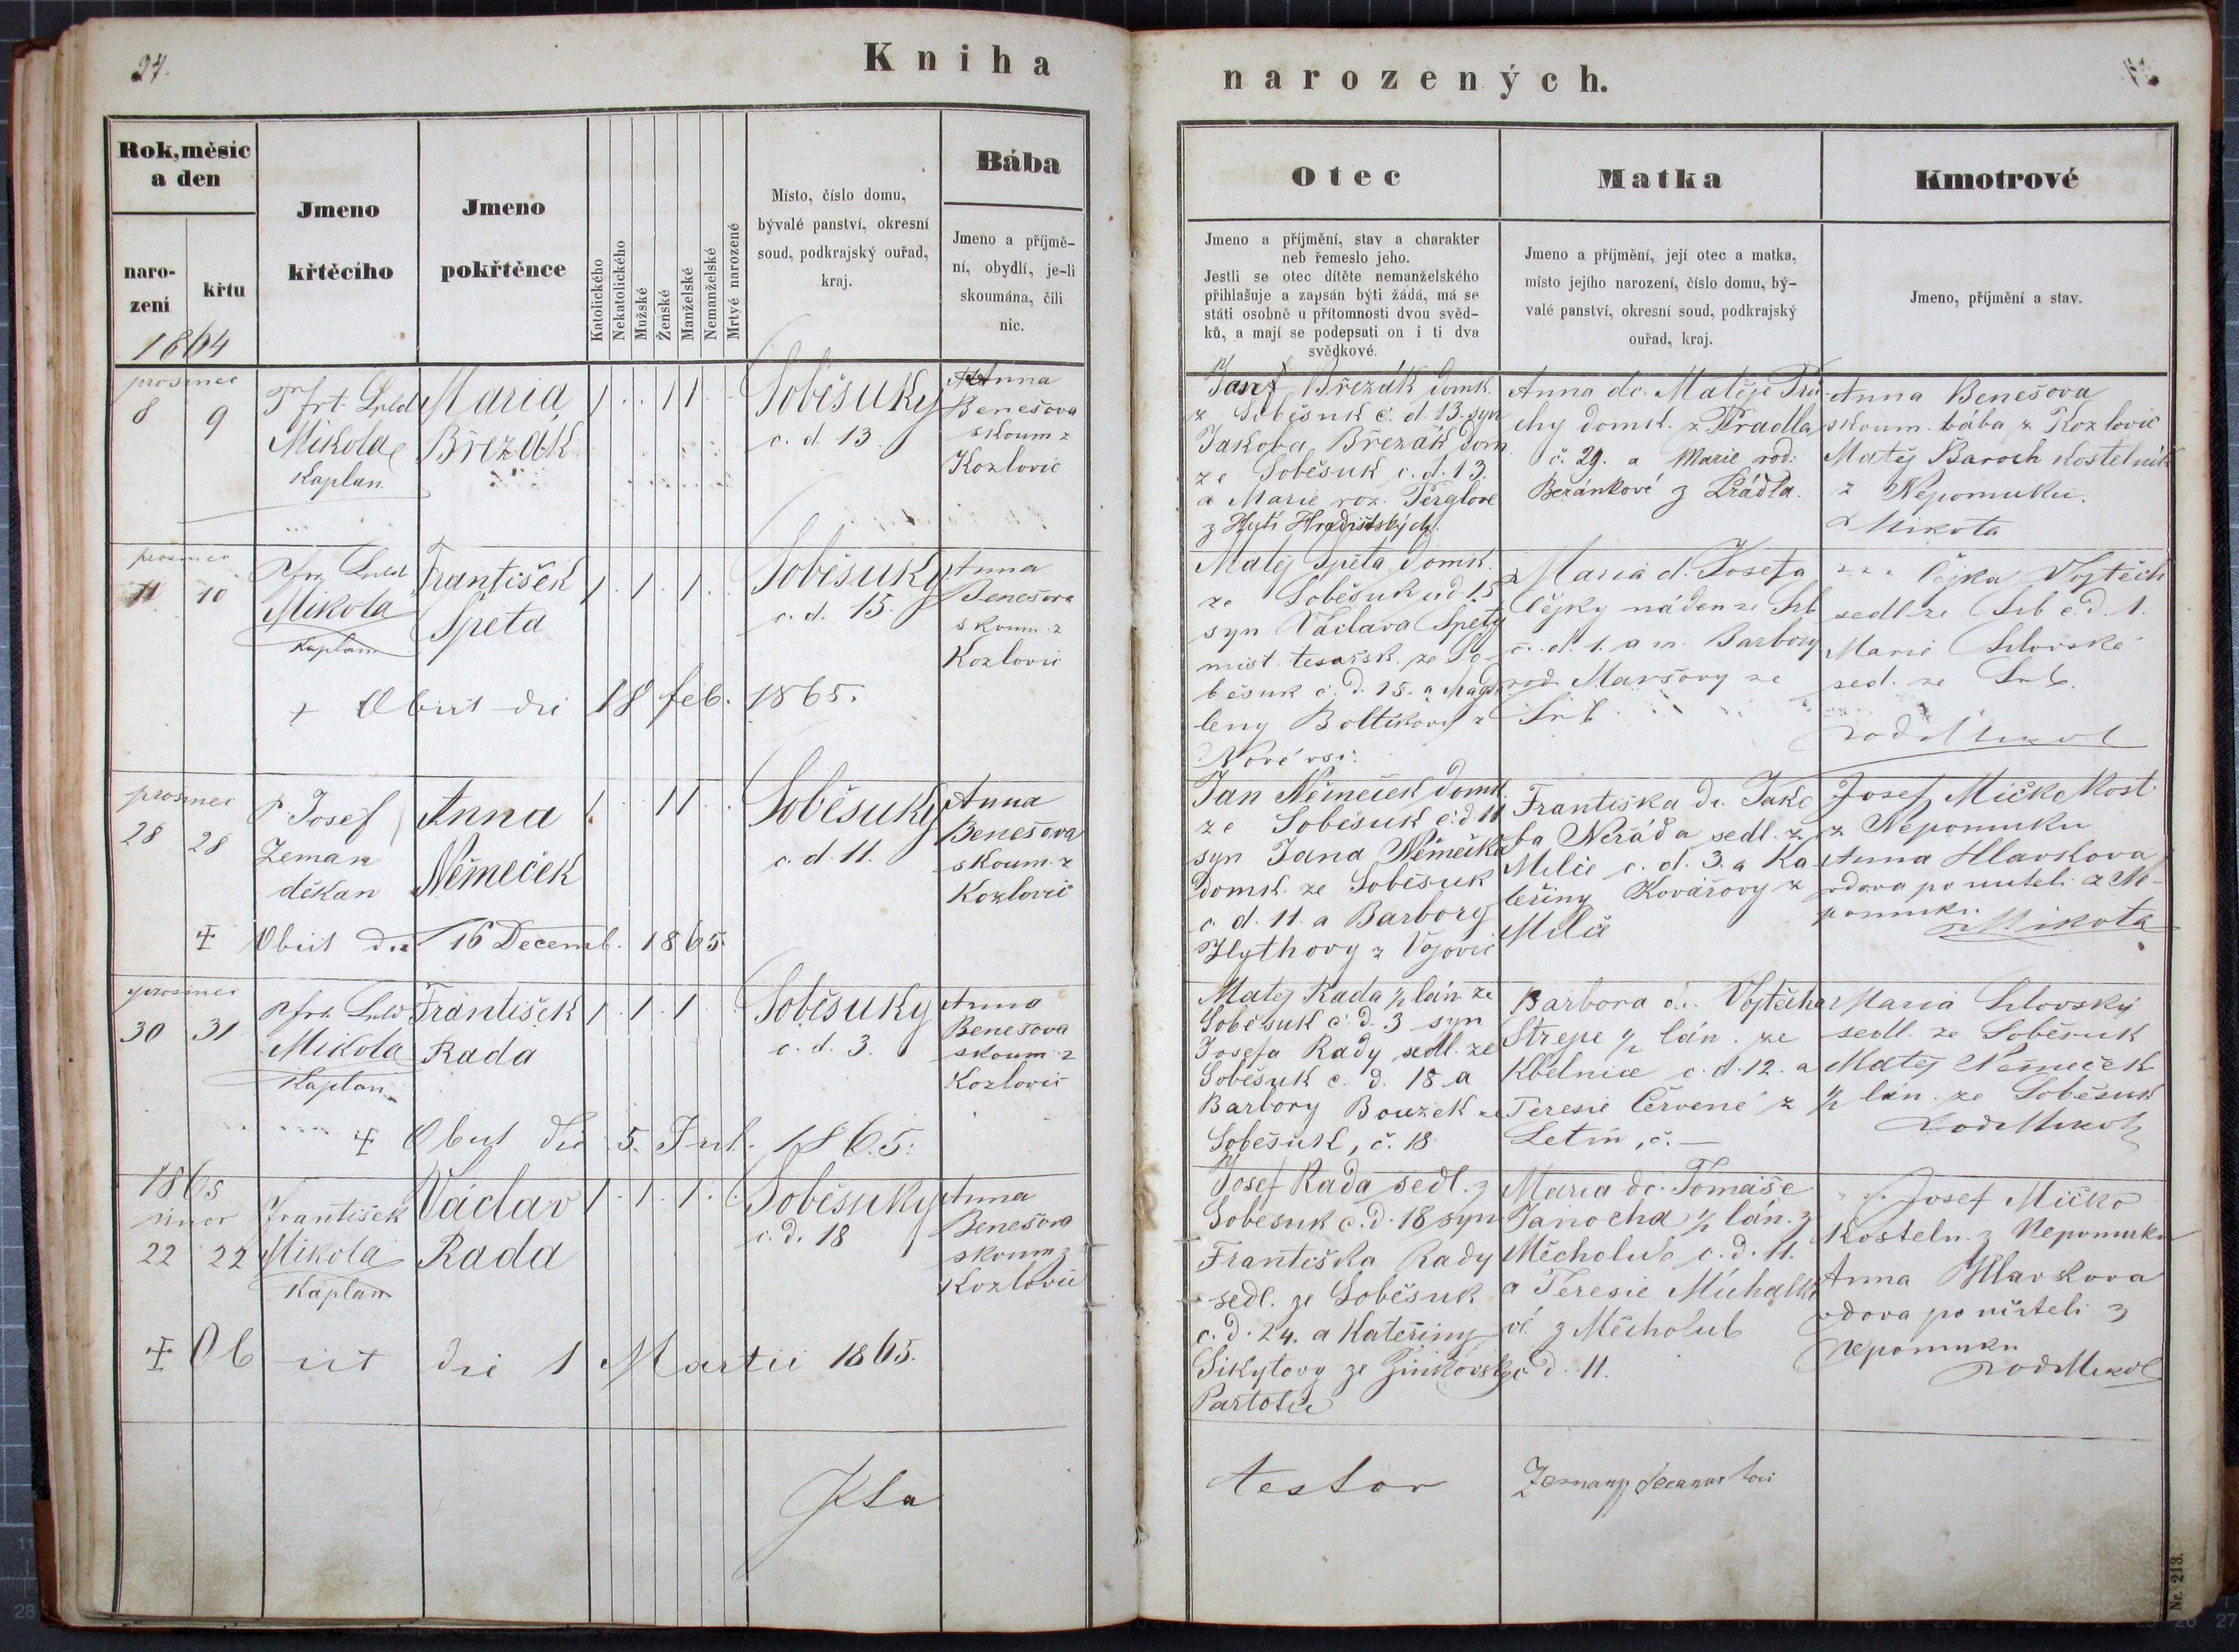 27.
Kniha
narozených.
Rok, měsíc
a den
naro-
zení
křtu
1864
Jmeno
křtěcího
Jmeno
pokřtěnce
Katolického
Nekatolického
Mužské
Ženské
Manželské
Nemanželské
Mrtvé narozené
Místo, číslo domu,
bývalé panství, okresní
soud, podkrajský ouřad,
kraj.
Bába
Jmeno a příjmě-
ní, obydlí, je-li
skoumána, čili
nic.
Otec
Jmeno a příjmění, stav a charakter
neb řemeslo jeho.
Jestli se otec dítěte nemanželského
přihlašuje a zapsán býti žádá, má se
státi osobně u přítomnosti dvou svěd-
ků, a mají se podepsati on i ti dva
svědkové.
Matka
Jmeno a příjmění, její otec a matka,
místo jejího narození, číslo domu, bý-
valé panství, okresní soud, podkrajský
ouřad, kraj.
Kmotrové
Jmeno, příjmění a stav.
prosinec
8 9
Mikola
Kaplan
Maria
Březák
1 1 1
Soběsuky
c. d. 13.
Anna
Benešova
skoum z
Kozlovic
Josef Březák domk.
z Soběsuk č. d. 13. syn
Jakoba Březák dom
ze Soběsuk c. d. 13.
a Marie roz. Perglove
z Hutí Hradištských.
Anna dc. Matěje Prů-
chy domk. z Pradla
č. 29. a Marie rod:
Beránkové z Prádla.
Anna Benešova
skoum. bába z Kozlovic
Matěj Baroch Kostelník
z Nepomuku.
Mikota
prosinec
11 10
Mikola
Kaplan
František
Špeta
1 1 1
Soběsuky
c. d. 15.
Anna
Benešova
skoum z
Kozlovic
+ Obiit die 18 feb. 1865.
Matěj Špeta domk.
ze Soběsuk čd. 15
syn Václava Špety
mist. tesařsk. ze So-
běsuk č. d. 15. a Magda
leny Boltikovy z
Nové vsi.
Maria d. Josefa
Čejky náden ze Srb
č. d. 1. a m. Barbory
rod Maršovy ze
Srb
Čejka Vojtěch
sedl ze Srb č. d. 1.
Marie
sed. ze Srb.
prosinec
28 28
P Josef
Zeman
děkan
Anna
Němeček
1 1 1
Soběsuky
c. d. 11.
Anna
Benešova
skoum. z
Kozlovic
‡ Obiit die 16 Decemb. 1865.
Jan Němeček domk.
ze Soběsuk č. d 11
syn Jana Němečka
domk. ze Soběsuk
c. d. 11. a Barbory
Hlythovy z Vojovic
Františka dc. Jako
ba Neráda sedl. z
Milče c. d. 3. a Ka
teřiny Kovářovy z
Milč
Josef Míčko Kost.
z Nepomuku
Anna Hlavskova
vdova po učiteli z Ne-
pomuku.
Mikota
prosinec
30 31
Mikola
Kaplan
František
Rada
1 1 1
Soběsuky
c. d. 3.
Anna
Benešova
skoum z
Kozlovic
‡ Obiit die 5. Jul. 1865.
Matěj Rada ½ lán ze
Soběsuk č. d. 3 syn
Josefa Rady sedl. ze
Soběsuk c. d. 18 a
Barbory Bouzek ze
Soběsuk, č. 18.
Barbora dc. Vojtěcha
Strepe ½ lán. ze
Kbelnice c. d. 12. a
Teresie Červené z
Letin, č. —
Maria
sedl. ze Soběsuk
Matěj Němeček
½ lán. ze Soběsuk
1865
únor
22 22
František
Mikola
Kaplan
Václav
Rada
1 1 1
Soběsuky
c. d. 18
Anna
Benešova
skoum z
Kozlovic
‡ Obiit die 1 Martii 1865.
Josef Rada sedl. z
Soběsuk c. d. 18 syn
Františka Rady
sedl. ze Soběsuk
c. d. 24. a Kateřiny
Sikytovy ze Žinkovsk
Partotic
Maria dc. Tomáše
Janocha ½ lán. z
Měcholub c. d. 11.
a Teresie Michalko
vé z Měcholub
c. d. 11.
Josef Míčko
Kosteln. z Nepomuku
Anna Hlavskova
vdova po učiteli z
Nepomuku
Ita
testor
Zeman decanus loci
Nr. 213.